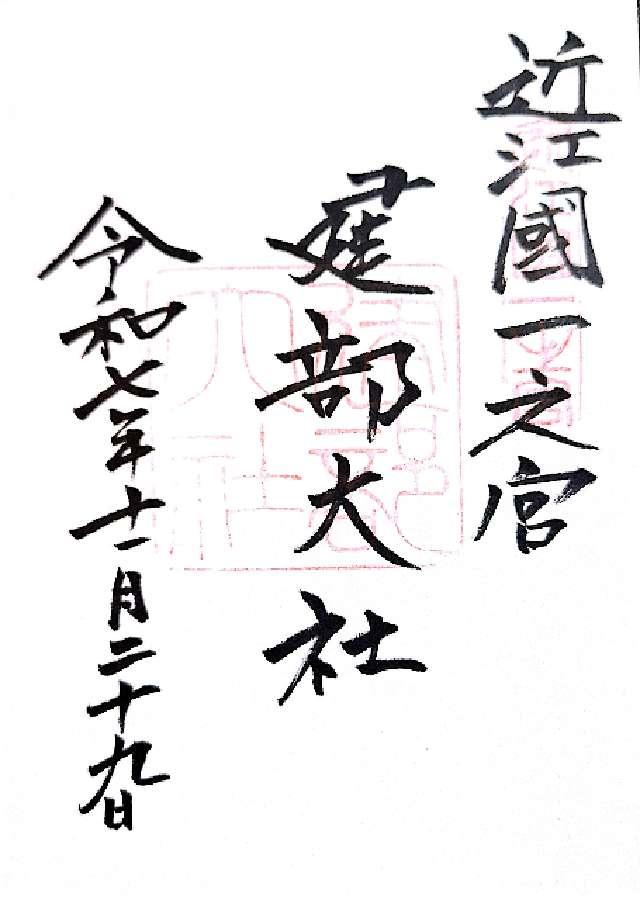 近江國一之宮
建部大社
令和七年十一月二十九日
建部大社